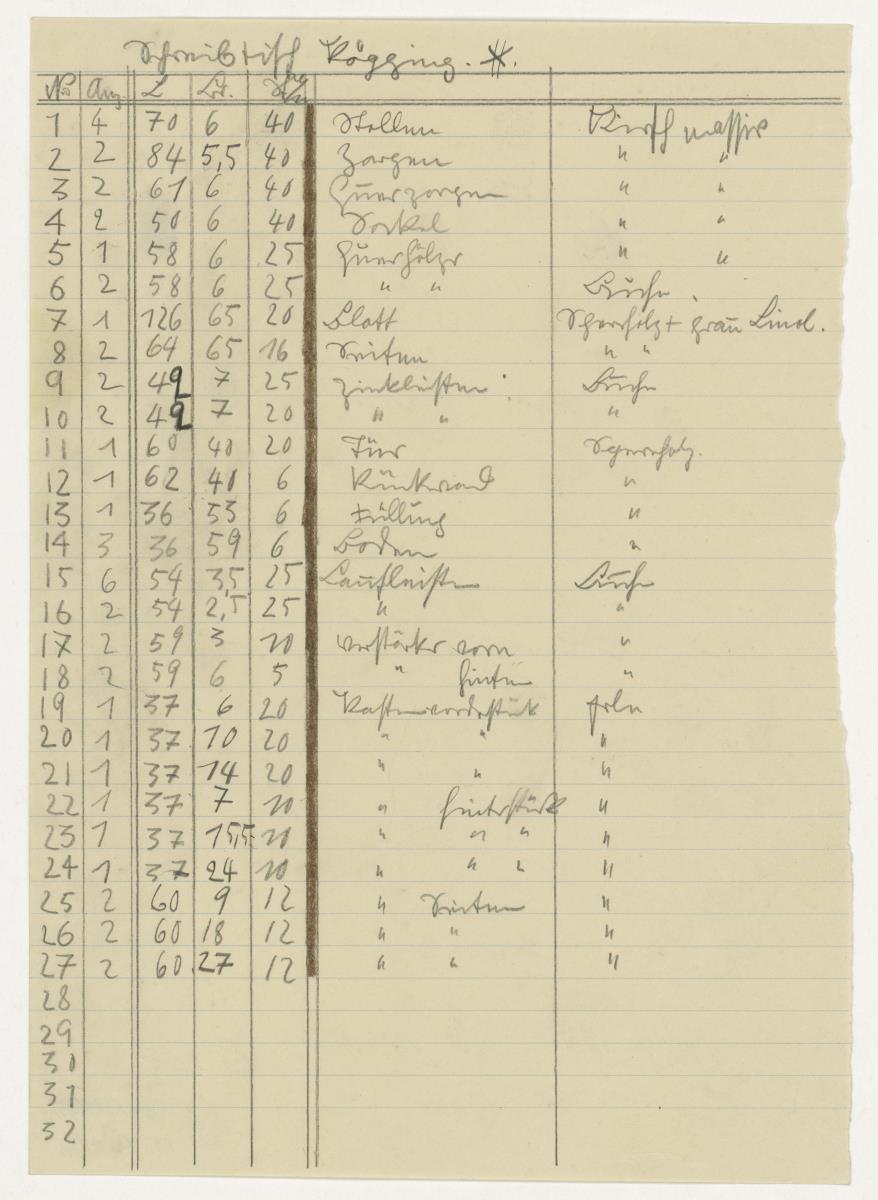 Schreibtisch Kögging. #.
No Anz L Br. Stk
1 4 70 6 40 Stollen Kirsch massiv
2 2 84 5,5 40 Zargen " "
3 2 61 6 40 Querzargen " "
4 2 50 6 40 Sockel " "
5 1 58 6 25 Querhölzr " "
6 2 58 6 25 " " Buche
7 1 126 65 20 Blatt Sperrholz + grau Linol.
8 2 64 65 16 Seiten " "
9 2 42 7 25 Zinkleisten Buche
10 2 42 7 20 " " "
11 1 60 40 20 Tür Sperrholz.
12 1 62 40 6 Rückwand "
13 1 36 53 6 Füllung "
14 3 36 59 6 Boden "
15 6 54 3,5 25 Laufleisten Buche
16 2 54 2,5 25 " "
17 2 59 3 10 Verstärker vorn "
18 2 59 6 5 " hinten "
19 1 37 6 20 Kastenvorderstück Erln
20 1 37 10 20 " " "
21 1 37 14 20 " " "
22 1 37 7 10 " Hinterstück "
23 1 37 15,5 10 " " " "
24 1 37 24 10 " " " "
25 2 60 9 12 " Seiten "
26 2 60 18 12 " " "
27 2 60 27 12 " " "
28
29
30
31
32